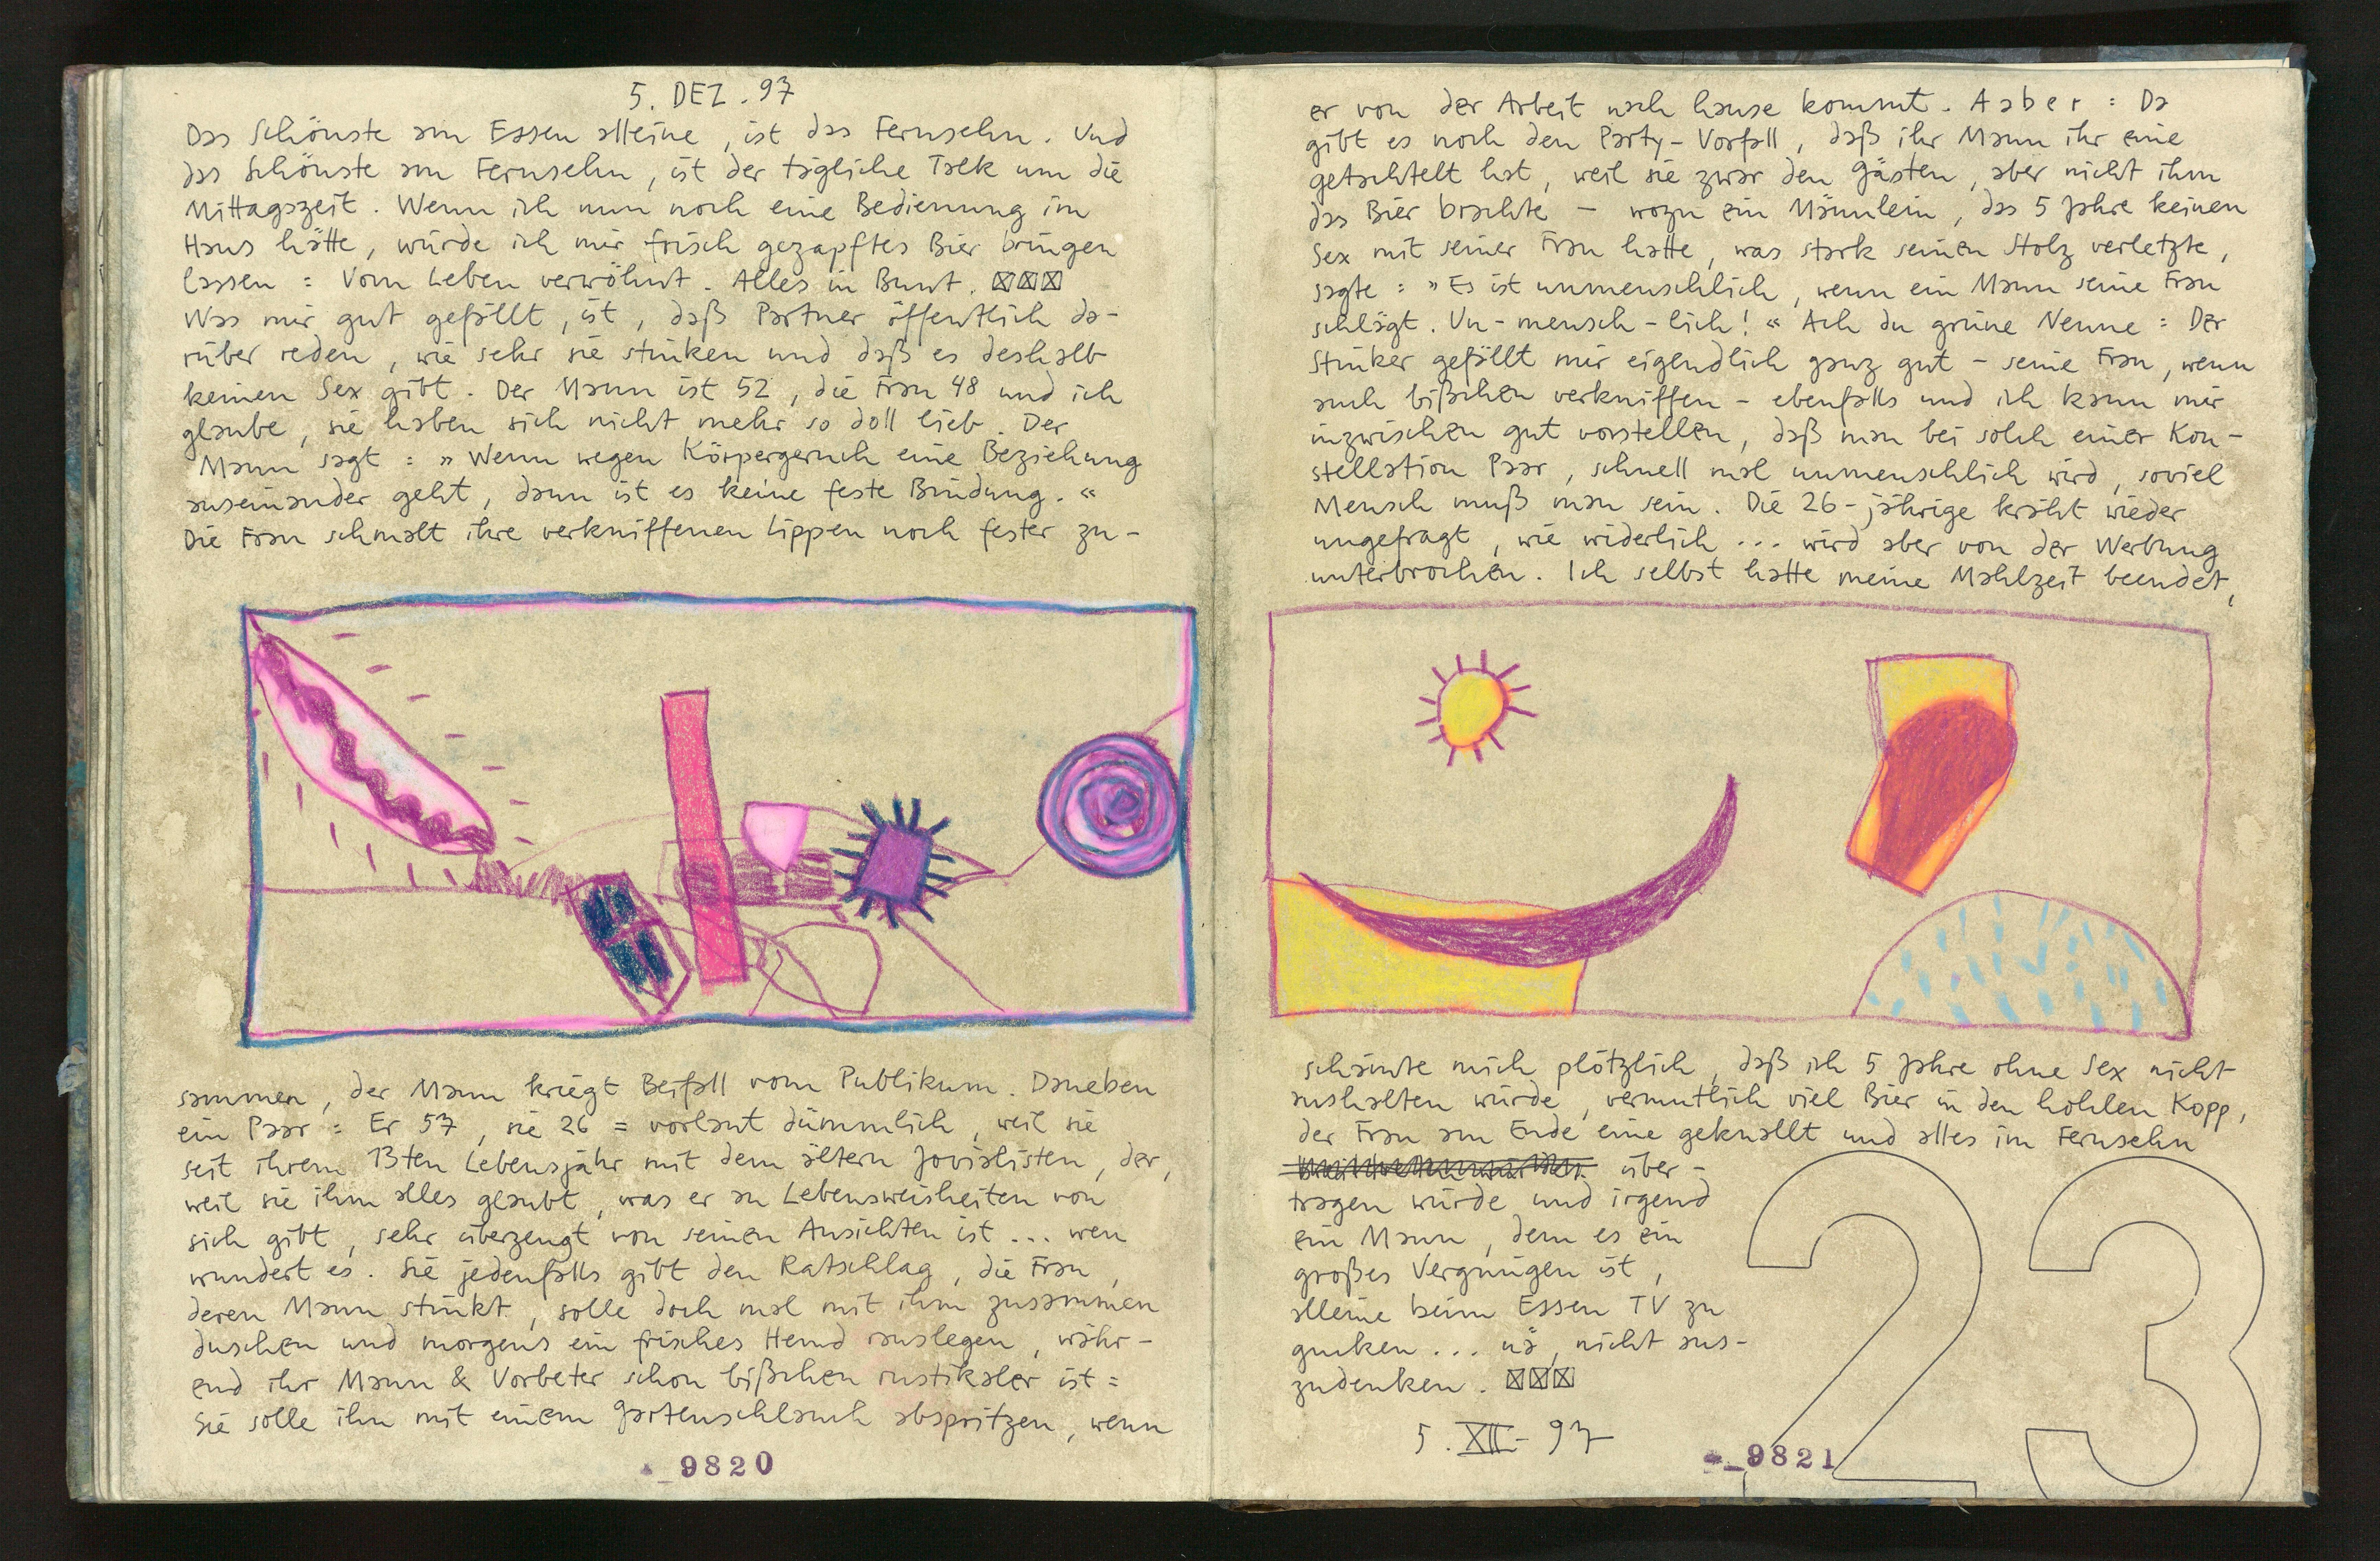 5. DEZ. 97
Das Schönste am Essen alleine, ist das Fernsehn. Und
das Schönste am Fernsehn, ist der tägliche Talk um die
Mittagszeit. Wenn ich nun noch eine Bedienung im
Haus hätte, würde ich mir frisch gezapftes Bier bringen
lassen = Vom Leben verwöhnt. Alles in Bunt. ☒☒☒
Was mir gut gefällt, ist, daß Partner öffentlich da-
rüber reden, wie sehr sie stinken und daß es deshalb
keinen Sex gibt. Der Mann ist 52, die Frau 48 und ich
glaube, sie haben sich nicht mehr so doll lieb. Der
Mann sagt = »Wenn wegen Körpergeruch eine Beziehung
auseinander geht, dann ist es keine feste Bindung.«
Die Frau schmalt ihre verkniffenen Lippen noch fester zu-
sammen, der Mann kriegt Beifall vom Publikum. Daneben
ein Paar = Er 57, sie 26 = vorlaut dümmlich, weil sie
seit ihrem 13ten Lebensjahr mit dem ältern Jovialisten, der,
weil sie ihm alles glaubt, was er an Lebensweisheiten von
sich gibt, sehr überzeugt von seinen Ansichten ist... wen
wundert es. Sie jedenfalls gibt den Ratschlag, die Frau,
deren Mann stinkt, solle doch mal mit ihm zusammen
duschen und morgens ein frisches Hemd rauslegen, währ-
end ihr Mann & Vorbeter schon bißchen rustikaler ist =
Sie solle ihn mit einem Gartenschlauch abspritzen, wenn
9820
er von der Arbeit nach hause kommt. Aaber = Da
gibt es noch den Party-Vorfall, daß ihr Mann ihr eine
getachtelt hat, weil sie zwar den Gästen, aber nicht ihm
das Bier brachte – wozu ein Männlein, das 5 Jahre keinen
Sex mit seiner Frau hatte, was stark seinen Stolz verletzte,
sagte = »Es ist unmenschlich, wenn ein Mann seine Frau
schlägt. Un-mensch-lich!« Ach du grüne Neune = Der
Stinker gefällt mir eigendlich ganz gut – seine Frau, wenn
auch bißchen verkniffen – ebenfalls und ich kann mir
inzwischen gut vorstellen, daß man bei solch einer Kon-
stellation Paar, schnell mal unmenschlich wird, soviel
Mensch muß man sein. Die 26-jährige kräht wieder
ungefragt, wie widerlich... wird aber von der Werbung
unterbrochen. Ich selbst hatte meine Mahlzeit beendet,
schämte mich plötzlich, daß ich 5 Jahre ohne Sex nicht
aushalten würde, vermutlich viel Bier in den hohlen Kopp,
der Frau am Ende eine geknallt und alles im Fernsehn
über-
tragen würde und irgend
ein Mann, dem es ein
großes Vergnügen ist,
alleine beim Essen TV zu
gucken... nä, nicht aus-
zudenken. ☒☒☒
5. XII - 97
23
9821